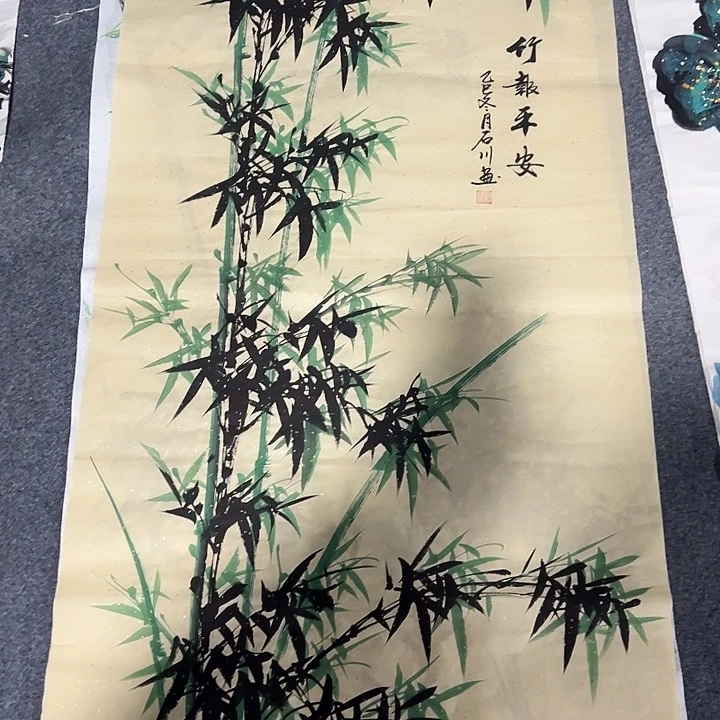 竹報平安
乙巳冬月石川画